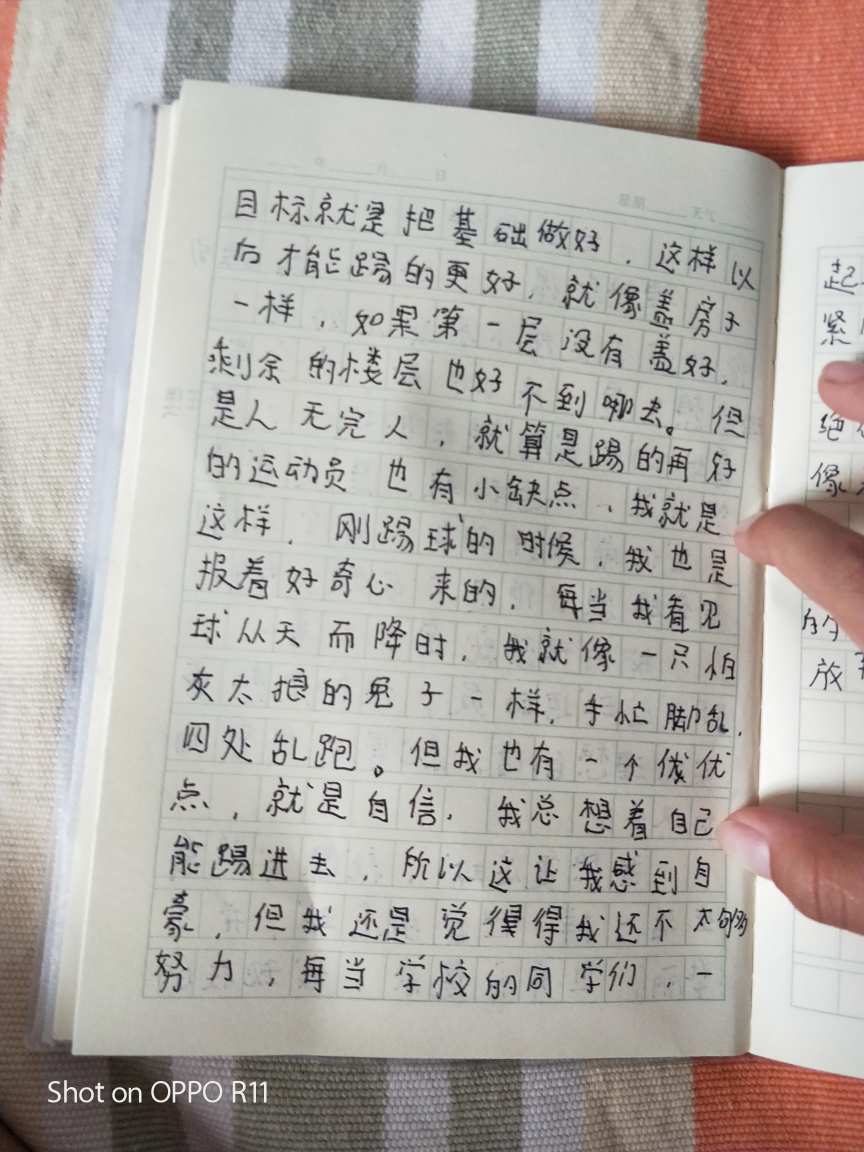 目标就是把基础做好，这样以
向才能踢的更好，就像盖房子
一样，如果第一层没有盖好，
剩余的楼层也好不到哪去。但
是人无完人，就算是踢的再好
的运动员也有小缺点，我就是
这样，刚踢球的时候，我也是
报着好奇心来的，每当我看见
球从天而降时，我就像一只怕
灰太狼的兔子一样，手忙脚乱，
四处乱跑。但我也有一个优优
点，就是自信，我总想着自己
能踢进去，所以这让我感到自
豪，但我还是觉得得我还不太够
努力，每当学校的同学们，一
起
紧
绝
像
的
放
Shot on OPPO R11